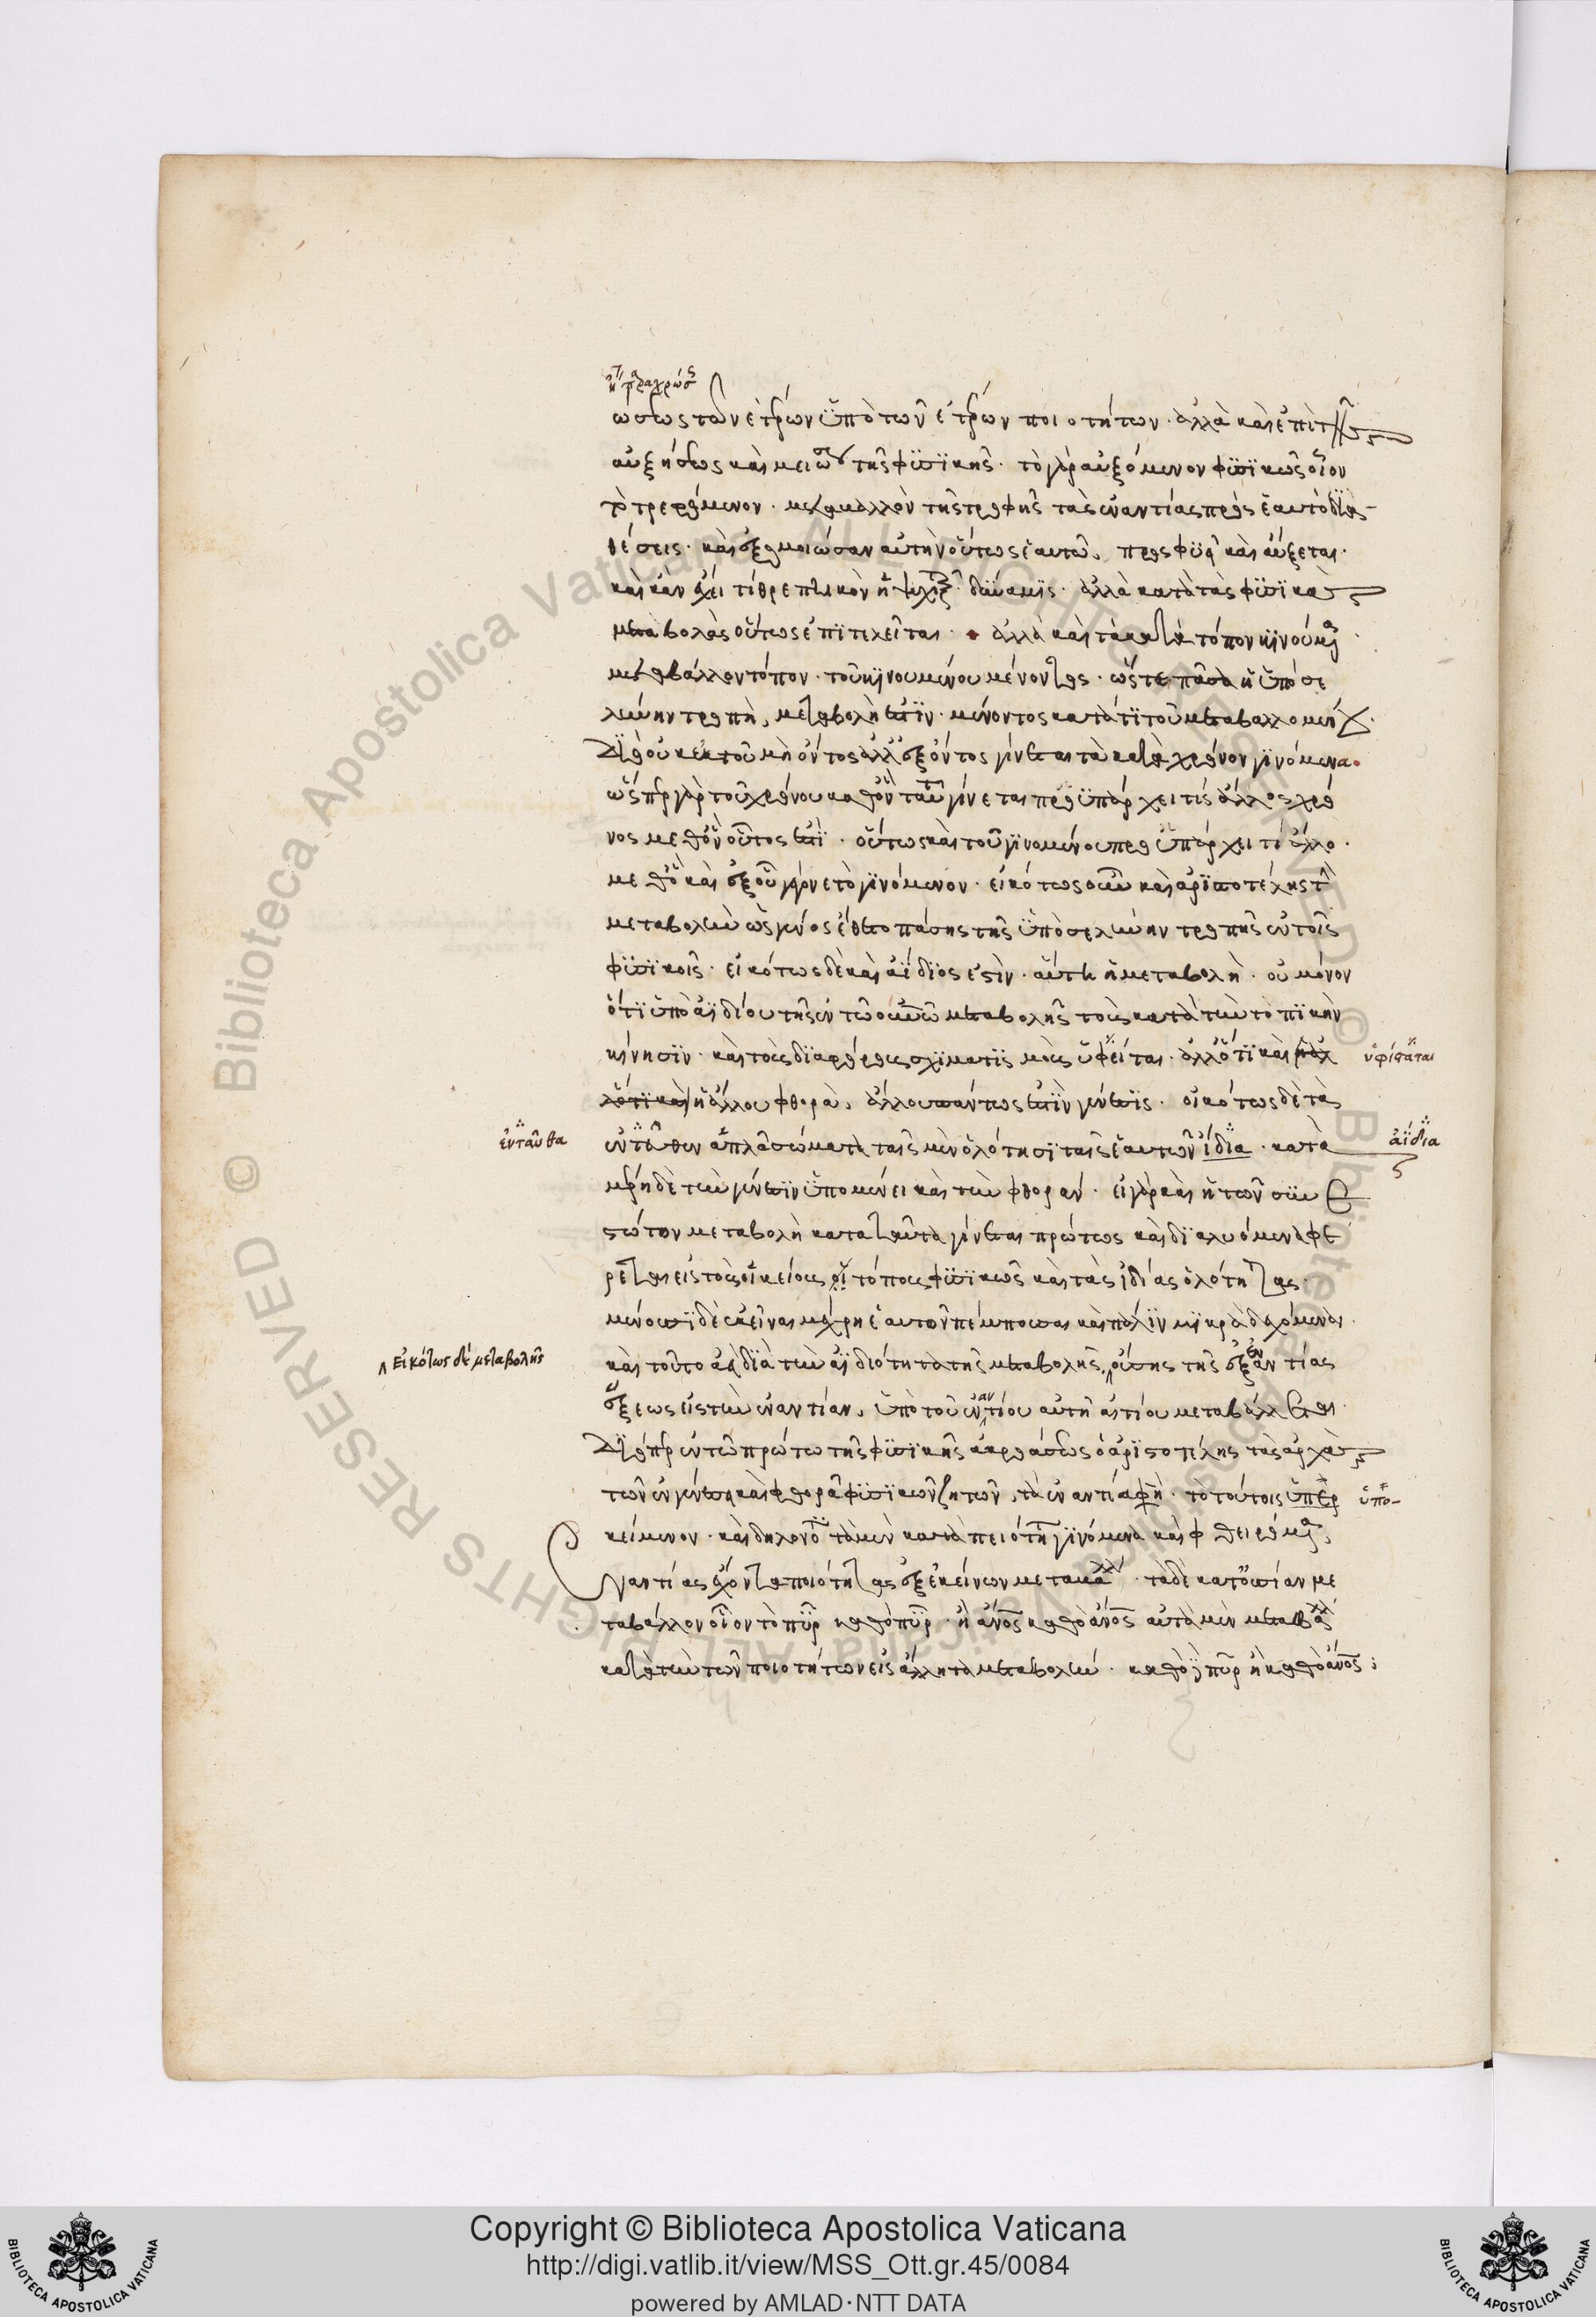 ώσεως τῶν ἑτέρων ὑπὸ τῶν ἑτέρων ποιοτήτων. ἀλλὰ καὶ ἐπὶ τῆς
αὐξήσεως καὶ μειώσεως τῆς φυσικῆς. τὸ γὰρ αὐξόμενον φυσικῶς οἷον
τὸ τρεφόμενον. μεταβάλλον τῆς τροφῆς τὰς ἐναντίας πρὸς ἑαυτὸ δια
θέσεις. καὶ ἐξομοιῶσαν αὐτὴν οὕτως ἑαυτῶ, προσφύει καὶ αὔξεται.
καὶ κἂν ἔχει τι θρεπτικὸν ἡ ψυχῆς δύναμις. ἀλλὰ κατὰ τὰς φυσικὰς
μεταβολὰς οὕτως ἐπιτελεῖται. ἀλλὰ καὶ τὰ κατὰ τόπον κινούμενα
μεταβάλλον τόπον. τοῦ κινουμένου μένοντος. ὥστε πᾶσα ἡ ὑπὸ σε
λήνην τροπὴ, μεταβολὴ ἐστιν. μένοντος κατά τι τοῦ μεταβαλλομένου.
διὸ οὐκ ἐκ τοῦ μὴ ὄντος ἀλλ' ἐξ ὄντος γίνεται τὰ κατὰ χρόνον γινόμενα.
ὥσπερ γὰρ τοῦ χρόνου καθ' ὃν ταῦτα γίνεται προϋπάρχει τίς ἄλλος χρό
νος μεθ' ὃν οὗτος ἐστὶ. οὕτως καὶ τοῦ γινομένου προϋπάρχει τί ἄλλο.
μεθ' ὃ καὶ ἐξ οὗ γέγονε τὸ γινόμενον. εἰκότως οὖν καὶ ἀριστοτέλης τὴν
μεταβολὴν ὡς γένος ἔθετο πάσης τῆς ὑπὸ σελήνην τροπῆς ἐν τοῖς
φυσικοῖς. εἰκότως δὲ καὶ ἀΐδιός ἐστιν. αὕτη ἡ μεταβολὴ. οὐ μόνον
ὅτι ὑπὸ ἀϊδίου τῆς ἐν τῶ οὐρανῶ μεταβολῆς τοὺς κατὰ τὴν τοπικὴν
κίνησιν. καὶ τοὺς διαφόρους σχηματισμοὺς ὑφεῖται. ἀλλ' ὅτι καὶ
ὑφίσταται
ἡ ἄλλου φθορὰ, ἄλλου πάντως ἐστὶν γένεσις. εἰκότως δὲ τὰ
ἐνταῦθα
ἐντεῦθεν ἁπλᾶ σώματα ταῖς μὲν ὁλότησι ταῖς ἑαυτῶν ἰδία. κατὰ
ἀΐδια
μέρη δὲ τὴν γένεσιν ὑπομένει καὶ τὴν φθοράν. εἰ γὰρ καὶ ἡ τῶν συνε
στώτων μεταβολὴ κατὰ ταῦτα γίνεται πρώτως καὶ διαλυόμενα φέ
ρεται εἰς τοὺς οἰκείους τόπους φυσικῶς καὶ τὰς ἰδίας ὁλότητας.
μένουσι δὲ ἐκεῖναι μέρη ἑαυτῶν πέμπουσαι καὶ πάλιν μικρὰ δεχόμεναι.
Εἰκότως δέ μεταβολῆς
καὶ τοῦτο ἀεὶ διὰ τὴν ἀϊδιότητα τῆς μεταβολῆς, οὔσης τῆς ἐξ ἐναντίας
ἕξεως εἰς τὴν ἐναντίαν, ὑπὸ τοῦ ἐναντίου αὐτῆ αἰτίου μεταβάλλεται.
διόπερ ἐν τῶ πρώτω τῆς φυσικῆς ἀκροάσεως ὁ ἀριστοτέλης τὰς ἀρχὰς
τῶν ἐν γενέσει καὶ φθορᾶ φυσικῶν ζητῶν, τὰ ἐναντία φὴ. τὸ τούτοις ὑπερ
ὑπο-
κείμενον. καὶ δῆλον ὅτι τὰ μὲν κατὰ ποιότητα γινόμενα καὶ φθειρόμενα,
ἐναντίας ἔχοντα ποιότητας ἐξ ἐκείνων μεταβάλλει. τὰ δὲ κατ' οὐσίαν με
ταβάλλον οἷον τὸ πῦρ καθὸ πῦρ. ἢ ἄνος καθὸ ἄνος αὐτὰ μὲν μεταβάλλει
κατὰ τὴν τῶν ποιοτήτων εἰς ἄλληλα μεταβολήν. καθὸ δὲ πῦρ ἢ καθὸ ἄνος;
Copyright © Biblioteca Apostolica Vaticana
http://digi.vatlib.it/view/MSS_Ott.gr.45/0084
powered by AMLAD·NTT DATA